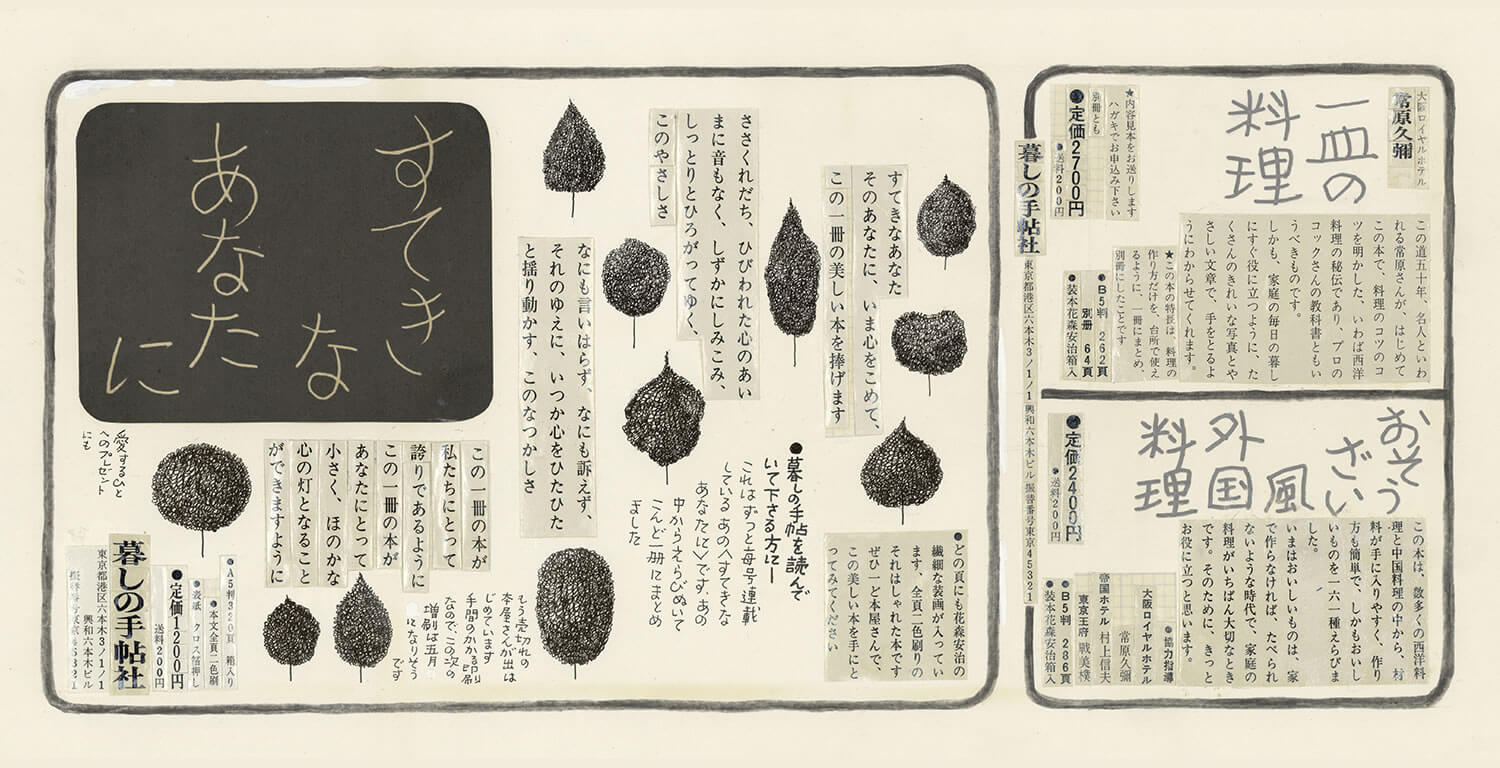 大阪ロイヤルホテル
常原久彌
一皿の
料理
この道五十年、名人といわ
れる常原さんが、はじめて
この本で、料理のコツのコ
ツを明かした、いわば西洋
料理の秘伝であり、プロの
コックさんの教科書ともい
うべきものです。
しかも、家庭の毎日の暮し
にすぐ役に立つように、た
くさんのきれいな写真とや
さしい文章で、手をとるよ
うにわからせてくれます。
★この本の特長は 料理の
作り方だけを、台所で使え
るように、一冊にまとめ、
別冊にしたことです
●B5判 262頁
別冊 64頁
●装本花森安治箱入
★内容見本をお送りします
ハガキでお申込み下さい
別冊とも
●定価2700円
●送料200円
暮しの手帖社
東京都港区六本木3ノ1ノ1 興和六本木ビル 振替番号東京45321
おそう
ざい
風
外国
料理
この本は、数多くの西洋料
理と中国料理の中から、材
料が手に入りやすく、作り
方も簡単で、しかもおいし
いものを一六一種えらびま
した。
いまはおいしいものは、家
で作らなければ、たべられ
ないような時代で、家庭の
料理がいちばん大切なとき
です。そのために、きっと
お役に立つと思います。
●協力指導
大阪ロイヤルホテル
常原久彌
帝国ホテル 村上信夫
東京王府 戰美樸
●B5判 236頁
●装本花森安治箱入
●定価2400円
●送料200円
すてき
な
あなた
に
すてきなあなた
そのあなたに、いま心をこめて、
この一冊の美しい本を捧げます
ささくれだち、ひびわれた心のあい
まに音もなく、しずかにしみこみ、
しっとりとひろがってゆく、
このやさしさ
なにも言いはらず、なにも訴えず、
それのゆえに、いつか心をひたひた
と揺り動かす、このなつかしさ
この一冊の本が
私たちにとって
誇りであるように
この一冊の本が
あなたにとって
小さく、ほのかな
心の灯となること
ができますように
●どの頁にも花森安治の
繊細な装画が入ってい
ます、全頁二色刷りの
それはしゃれた本です
ぜひ一ど本屋さんで、
この美しい本を手にと
ってみてください
●暮しの手帖を読んで
いて下さる方に―
これはずっと毎号連載
している あの〈すてきな
あなたに〉です、あの
中からえらびぬいて
こんど一冊にまとめ
ました
もう売切れの
本屋さんが出は
じめています
手間のかかる印刷
なので、この次の
増刷は五月
になりそう
です
愛するひと
へのプレゼント
にも
●A5判320頁 箱入り
●本文全頁二色刷
●表紙 クロス箔押し
●定価1200円
送料200円
暮しの手帖社
東京都港区六本木3ノ1ノ1
興和六本木ビル
振替番号東京45321